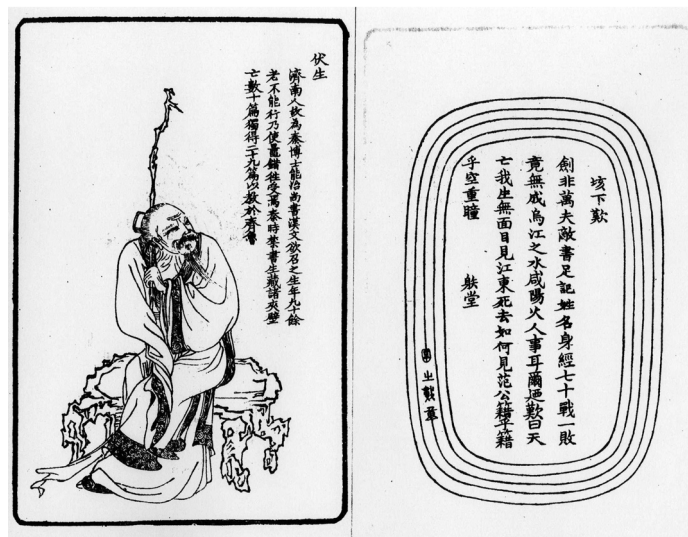 垓下歎
劍非萬夫敵書足記姓名身經七十戰一敗
竟無成烏江之水咸陽火人事耳爾廼歎曰天
亡我生無面目見江東死去如何見范公籍乎籍
乎空重瞳 䠶堂
伏生
濟南人故為秦博士能治尚書漢文欲召之生年九十餘
老不能行乃使鼂錯往受焉秦時禁書生藏諸夾壁
亡數十篇獨得二十九篇以教於齊魯